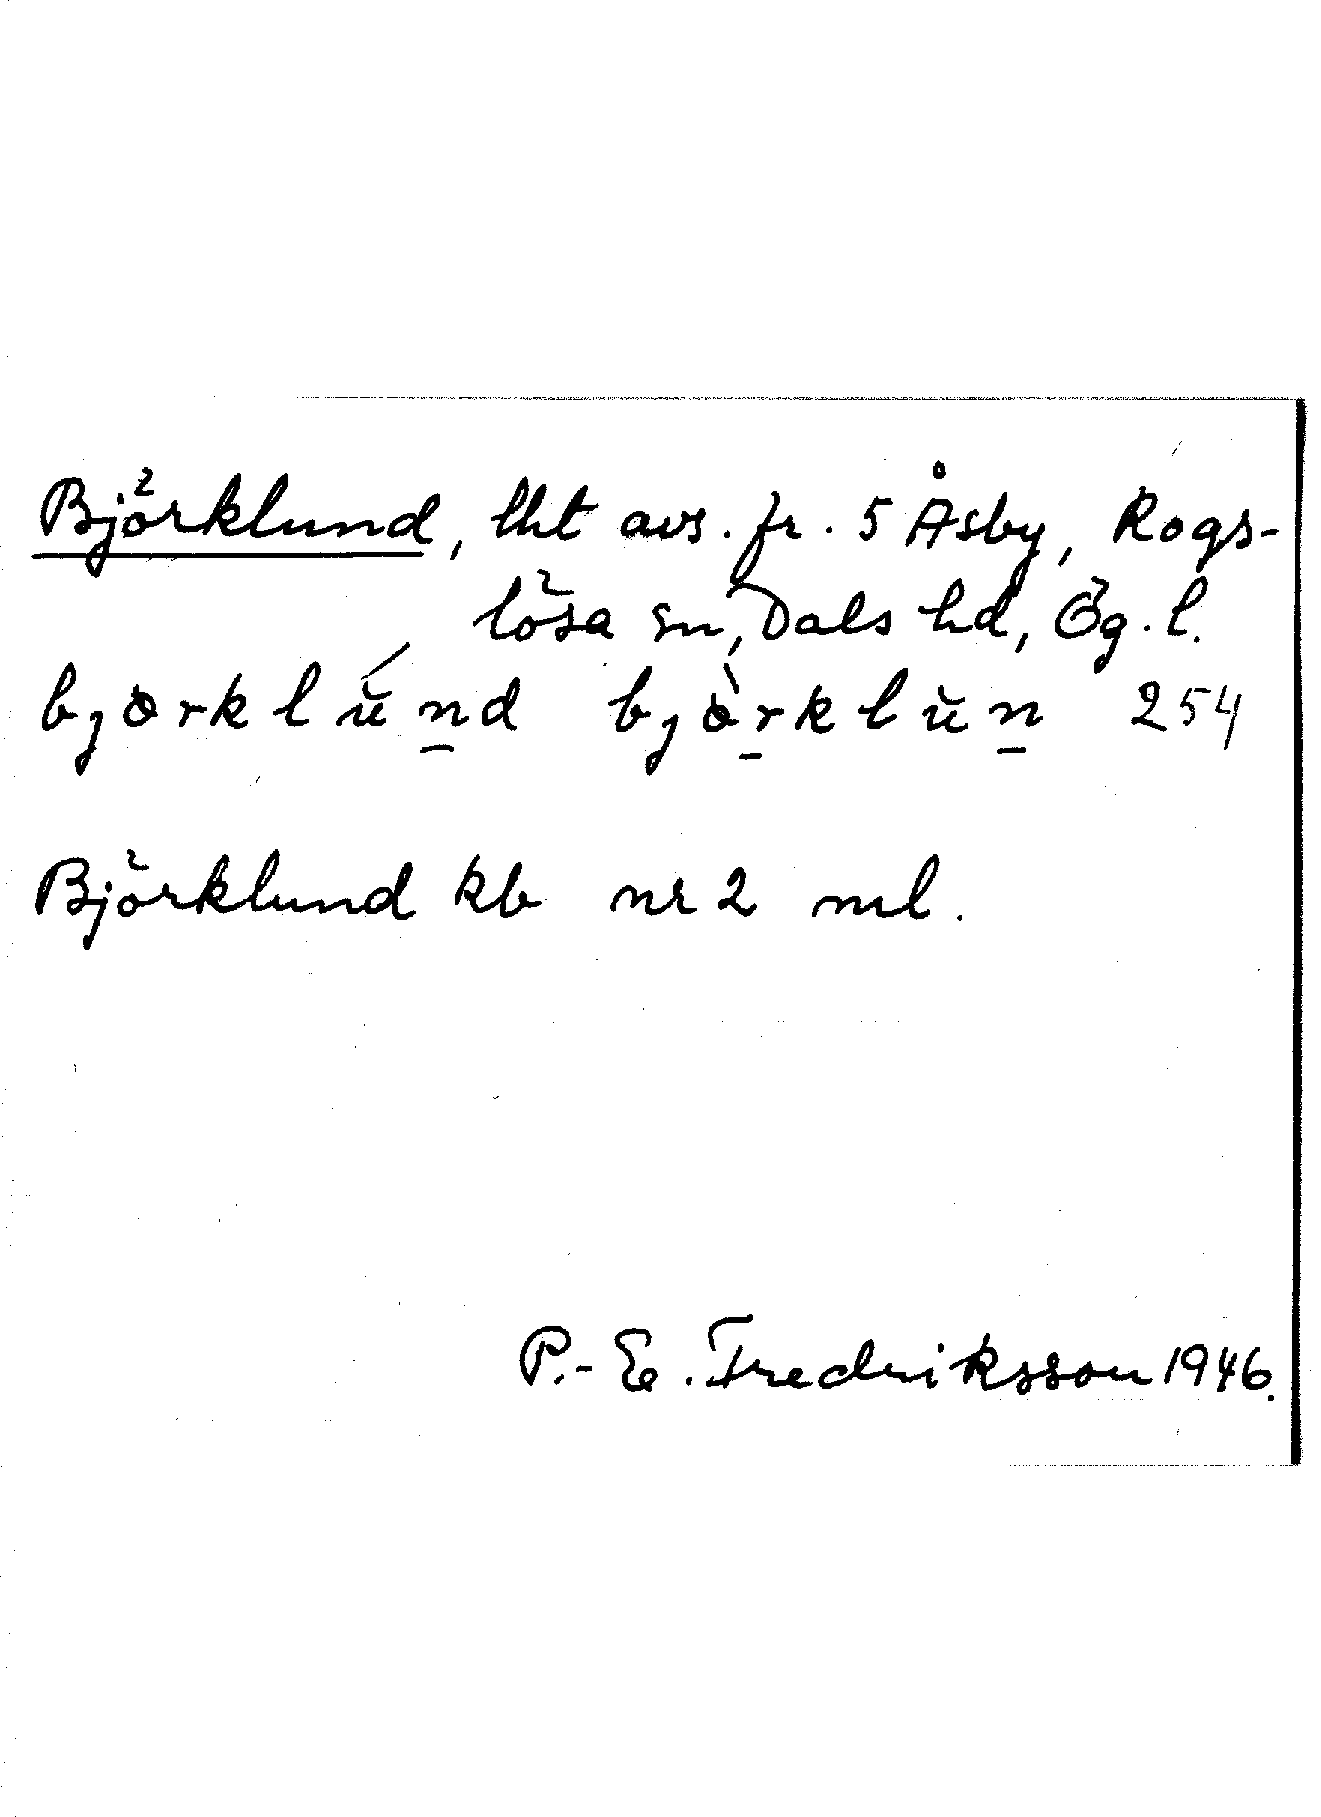 Björklund, lht avs. fr. 5 Åsby, Rogs-
lösa sn, Dals hd, Ög. l.
bjɵrklŭ́nd bjɵ̀rklŭn 254
Björklund kb nr 2 ml.
P.-E. Fredriksson 1946.